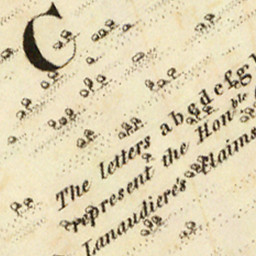 C
The letters abcdefg
represent the Honble
Lanaudiere's Claims